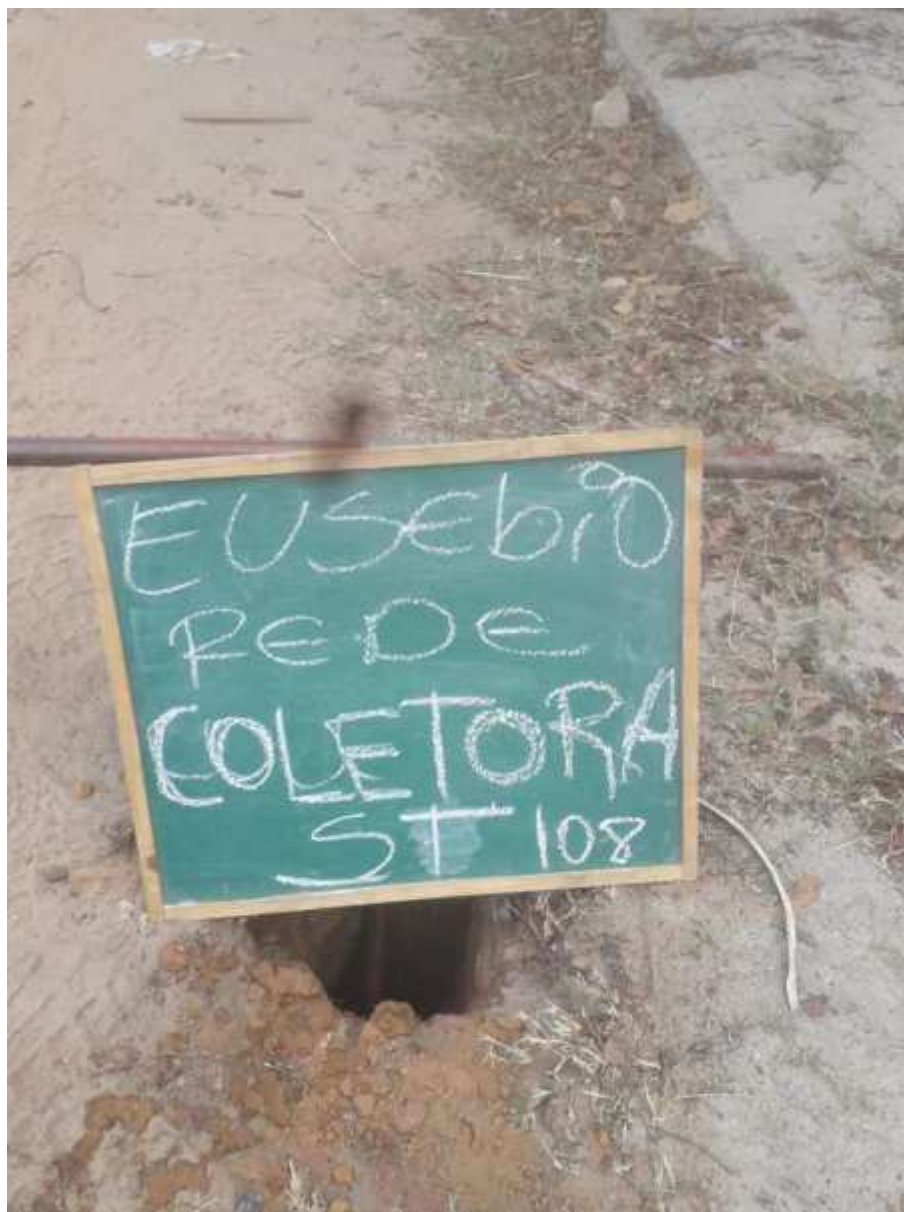 EUSEbiO
REDE
COLETORA
ST 108